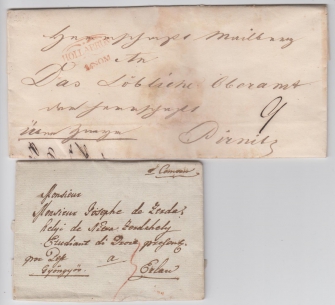 Herrschaft Mailberg
An
Das Löbliche Oberamt
der Herrschaft
Pirnitz
über Znaym
HOLLABRUN
9
Monsieur
Monsieur Josephe de Zorda
helyi de Nicra-Zordahely
Etudiant di Droit, present.
per Pest
a
Gyöngyös
Erlau